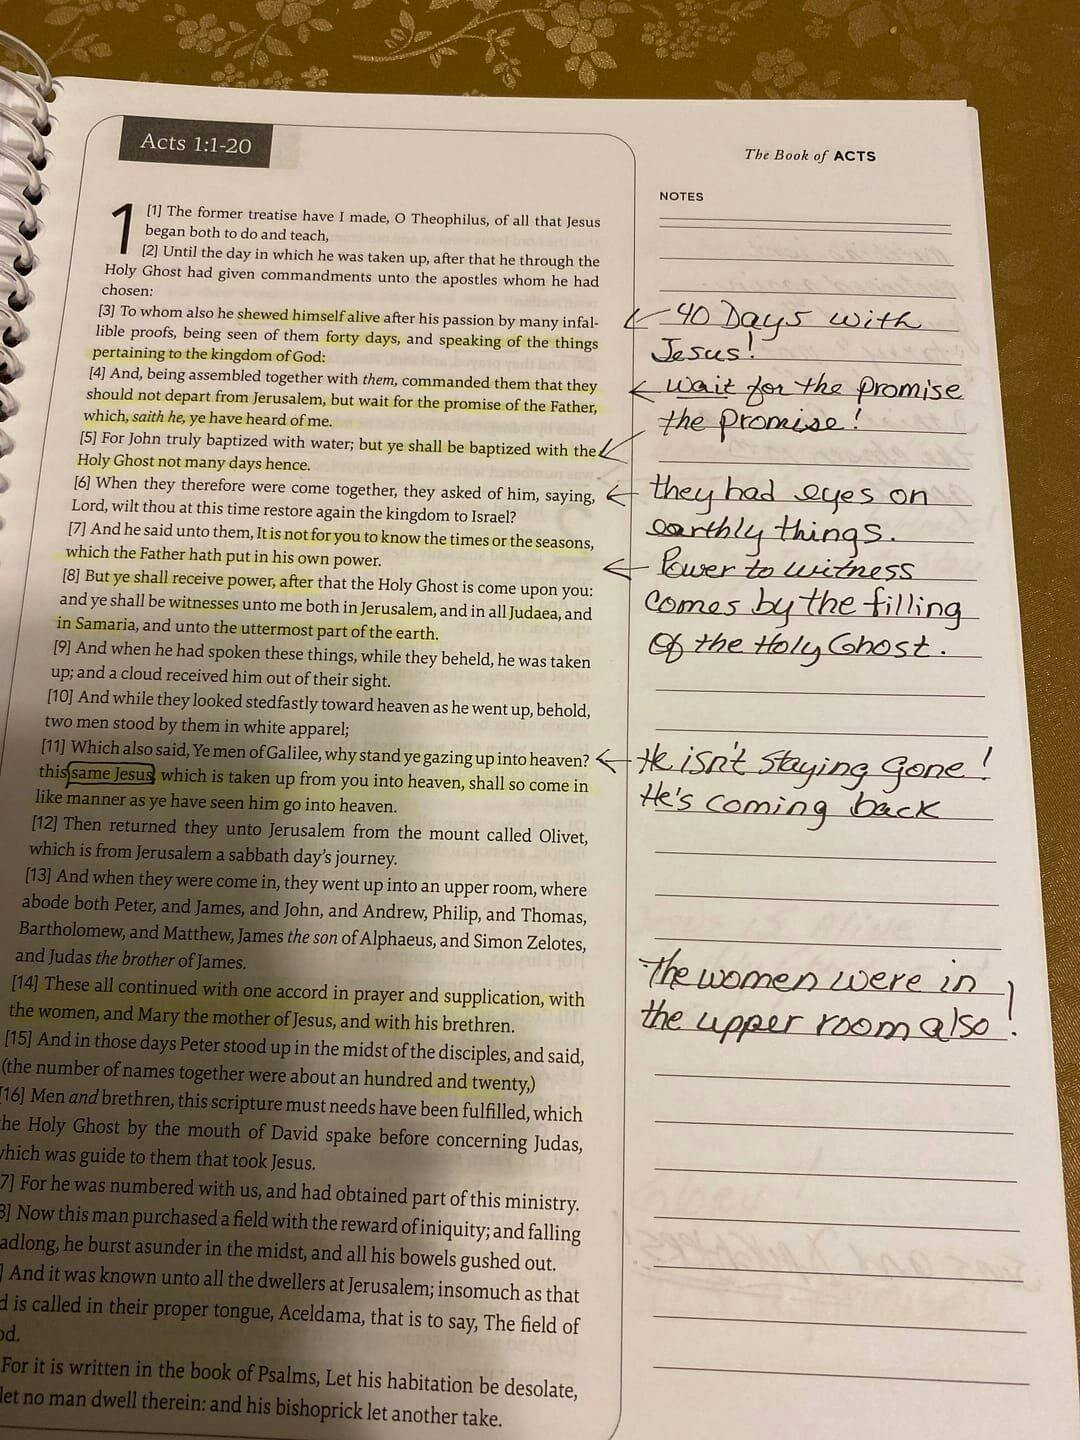 Acts 1:1-20
The Book of ACTS
NOTES
1
[1] The former treatise have I made, O Theophilus, of all that Jesus
began both to do and teach,
[2] Until the day in which he was taken up, after that he through the
Holy Ghost had given commandments unto the apostles whom he had
chosen:
[3] To whom also he shewed himself alive after his passion by many infal-
lible proofs, being seen of them forty days, and speaking of the things
pertaining to the kingdom of God:
[4] And, being assembled together with them, commanded them that they
should not depart from Jerusalem, but wait for the promise of the Father,
which, saith he, ye have heard of me.
[5] For John truly baptized with water; but ye shall be baptized with the
Holy Ghost not many days hence.
[6] When they therefore were come together, they asked of him, saying,
Lord, wilt thou at this time restore again the kingdom to Israel?
[7] And he said unto them, It is not for you to know the times or the seasons,
which the Father hath put in his own power.
[8] But ye shall receive power, after that the Holy Ghost is come upon you:
and ye shall be witnesses unto me both in Jerusalem, and in all Judaea, and
in Samaria, and unto the uttermost part of the earth.
[9] And when he had spoken these things, while they beheld, he was taken
up; and a cloud received him out of their sight.
[10] And while they looked stedfastly toward heaven as he went up, behold,
two men stood by them in white apparel;
[11] Which also said, Ye men of Galilee, why stand ye gazing up into heaven?
this same Jesus, which is taken up from you into heaven, shall so come in
like manner as ye have seen him go into heaven.
[12] Then returned they unto Jerusalem from the mount called Olivet,
which is from Jerusalem a sabbath day's journey.
[13] And when they were come in, they went up into an upper room, where
abode both Peter, and James, and John, and Andrew, Philip, and Thomas,
Bartholomew, and Matthew, James the son of Alphaeus, and Simon Zelotes,
and Judas the brother of James.
[14] These all continued with one accord in prayer and supplication, with
the women, and Mary the mother of Jesus, and with his brethren.
[15] And in those days Peter stood up in the midst of the disciples, and said,
(the number of names together were about an hundred and twenty,)
[16] Men and brethren, this scripture must needs have been fulfilled, which
he Holy Ghost by the mouth of David spake before concerning Judas,
which was guide to them that took Jesus.
7] For he was numbered with us, and had obtained part of this ministry.
8] Now this man purchased a field with the reward of iniquity; and falling
adlong, he burst asunder in the midst, and all his bowels gushed out.
] And it was known unto all the dwellers at Jerusalem; insomuch as that
d is called in their proper tongue, Aceldama, that is to say, The field of
od.
For it is written in the book of Psalms, Let his habitation be desolate,
let no man dwell therein: and his bishoprick let another take.
40 Days with
Jesus!
wait for the promise
the promise!
they had eyes on
earthly things.
Power to witness
comes by the filling
of the Holy Ghost.
He isn't staying gone!
He's coming back
The women were in
the upper room also!